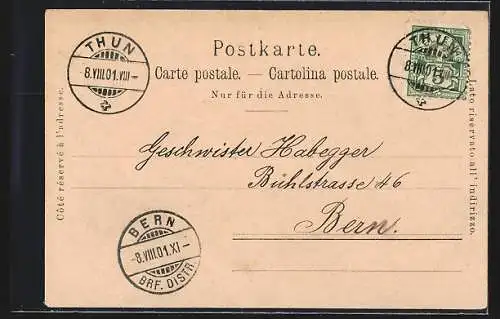 THUN
-8.VIII.01.VIII-
Postkarte.
Carte postale. — Cartolina postale.
Nur für die Adresse.
THUN
8.VIII.01
5
Côté réservé à l'adresse.
Lato riservato all' indirizzo.
Geschwister Habegger
Bühlstrasse 46
Bern.
BERN
-8.VIII.01.XI-
BRF. DISTR.